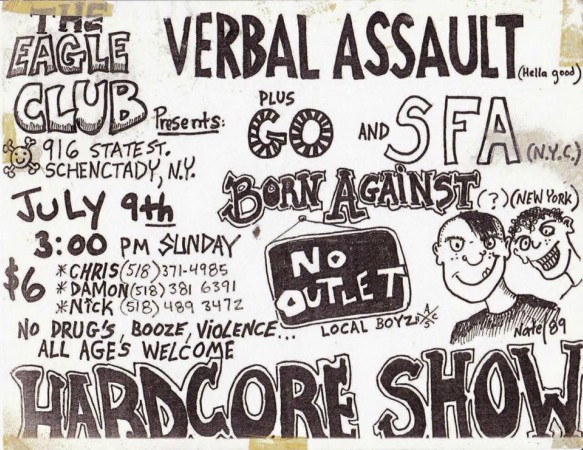 THE
EAGLE
CLUB
VERBAL ASSAULT
(Hella good)
Presents:
PLUS
GO AND SFA
(N.Y.C.)
916 STATE ST.
SCHENCTADY, N.Y.
BORN AGAINST (?) (NEW YORK)
JULY 9th
3:00 PM SUNDAY
$6
*CHRIS (518) 371-4985
*DAMON (518) 381 6391
*NICK (518) 489 3472
NO
OUTLET
LOCAL BOYZ
A/SC
Nate/89
NO DRUG'S, BOOZE, VIOLENCE...
ALL AGE'S WELCOME
HARDCORE SHOW